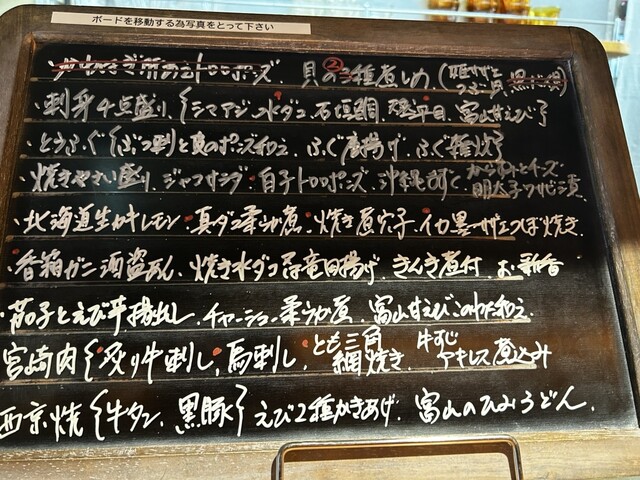 ボードを移動する為写真をとって下さい
ポズ、貝の②種煮しめ(姫サザエ つぶ貝
・刺身4点盛り{シマアジ 水ダコ 石垣鯛 平目 富山甘えび}
・とらふぐ{ぶつ刺と皮のポズ和え、ふぐ唐揚げ、ふぐ雑炊}
・焼きやさい盛り、ジャコサラダ・白子トロロポーズ、沖縄もずく からすみとチーズ 明太子ワサビ漬
・北海道生カキレモン・真ダコ柔か煮・焼き煮穴子・イカ墨
・香箱ガニ酒盗あん、焼き水ダコ 竜田揚げ、きんき煮付、お新香
・茄子とえび芋揚出し、チャーシュー柔らか煮、富山甘えびこのわた和え
宮崎肉{炙り牛刺し、馬刺し、とも三角 網焼き、牛すじ アキレス煮込み
西京焼{牛タン、黒豚}えび2種かきあげ、富山のひみうどん、